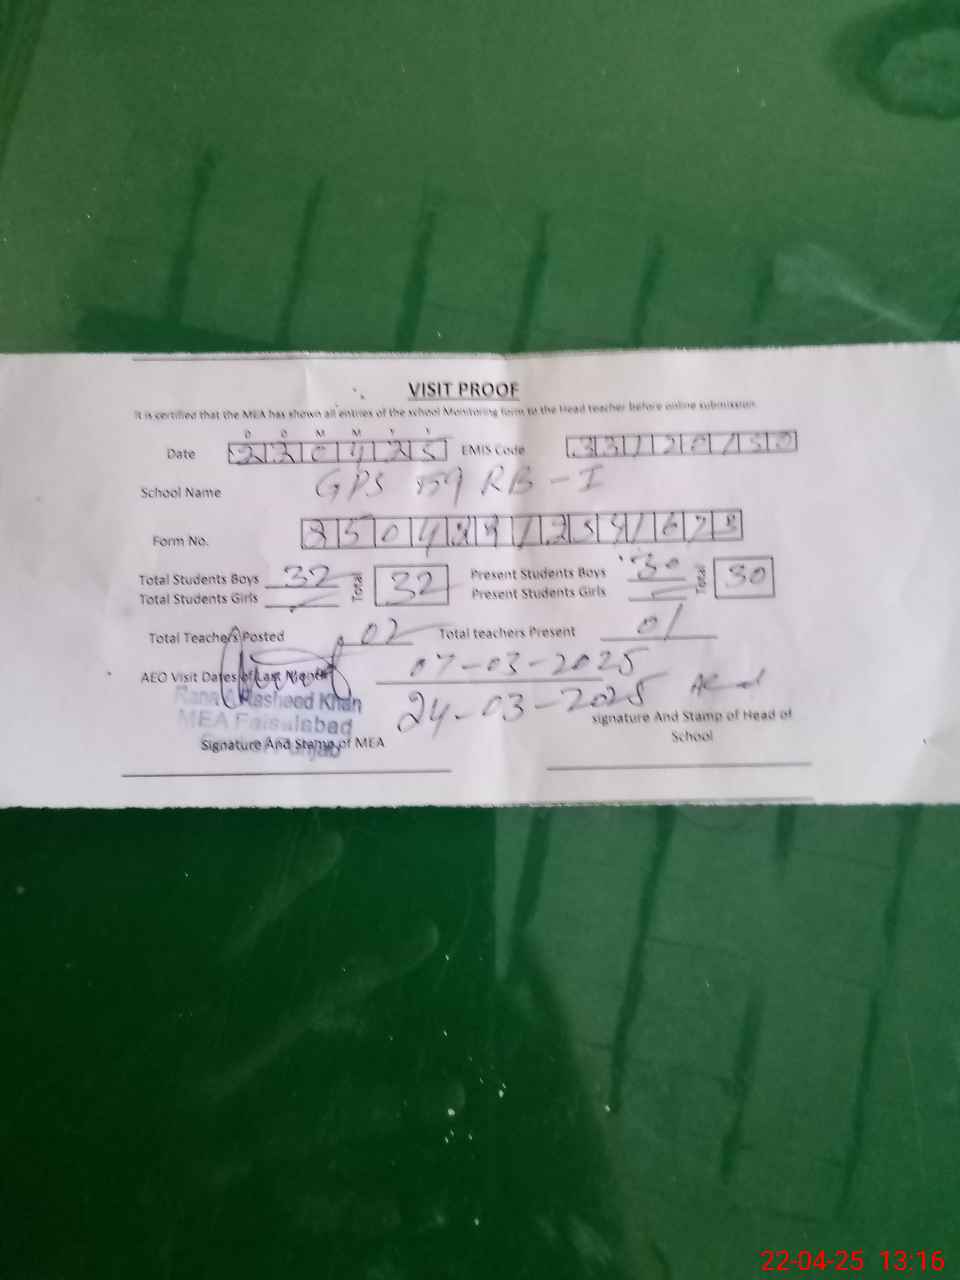 VISIT PROOF
It is certified that the MEA has shown all entries of the school Monitoring form to the Head teacher before online submission.
D D M M Y Y
Date 220425 EMIS Code 33120750
School Name GPS 59 RB - I
Form No.
Total Students Boys 32 Total 32 Present Students Boys 30 Total 30
Total Students Girls Present Students Girls
Total Teachers Posted 02 Total teachers Present 01
AEO Visit Dates of Last Month 07-03-2025
24-03-2025
Rana Rasheed Khan
MEA Faisalabad
Punjab
Signature And Stamp of MEA
signature And Stamp of Head of
School
22-04-25 13:16